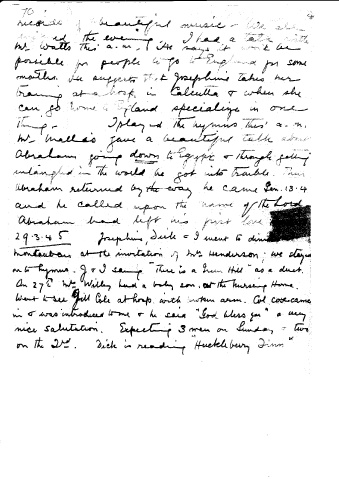 70
records of beautiful music - We all
the evening. I had a talk with
Mr Watts this a.m. He says it won't be
possible for people to go to England for some
months. He suggests that Josephine takes her
training at a hosp. in Calcutta & when she
can go home to England specialize in one
thing - I played the hymns this a.m.
Mr Mallas gave a beautiful talk about
Abraham going down to Egypt & through getting
entangled in the world he got into trouble. Then
Abraham returned by the way he came Gen. 13.4
and he called upon the name of the Lord
Abraham had left his first love
29.3.45 Josephine, Dick & I went to dinner
at the invitation of Mrs Henderson; we stayed
on to hymns. J & I sang "There is a Green Hill" as a duet.
On 27th Mrs Willey had a baby son at the Nursing Home.
Went to see Jill Cole at hosp. with broken arm. Col Cole came
in & was introduced to me & he said "God bless you" a very
nice salutation. Expecting 3 men on Sunday & two
on the 2nd. Dick is reading "Huckleberry Finn"